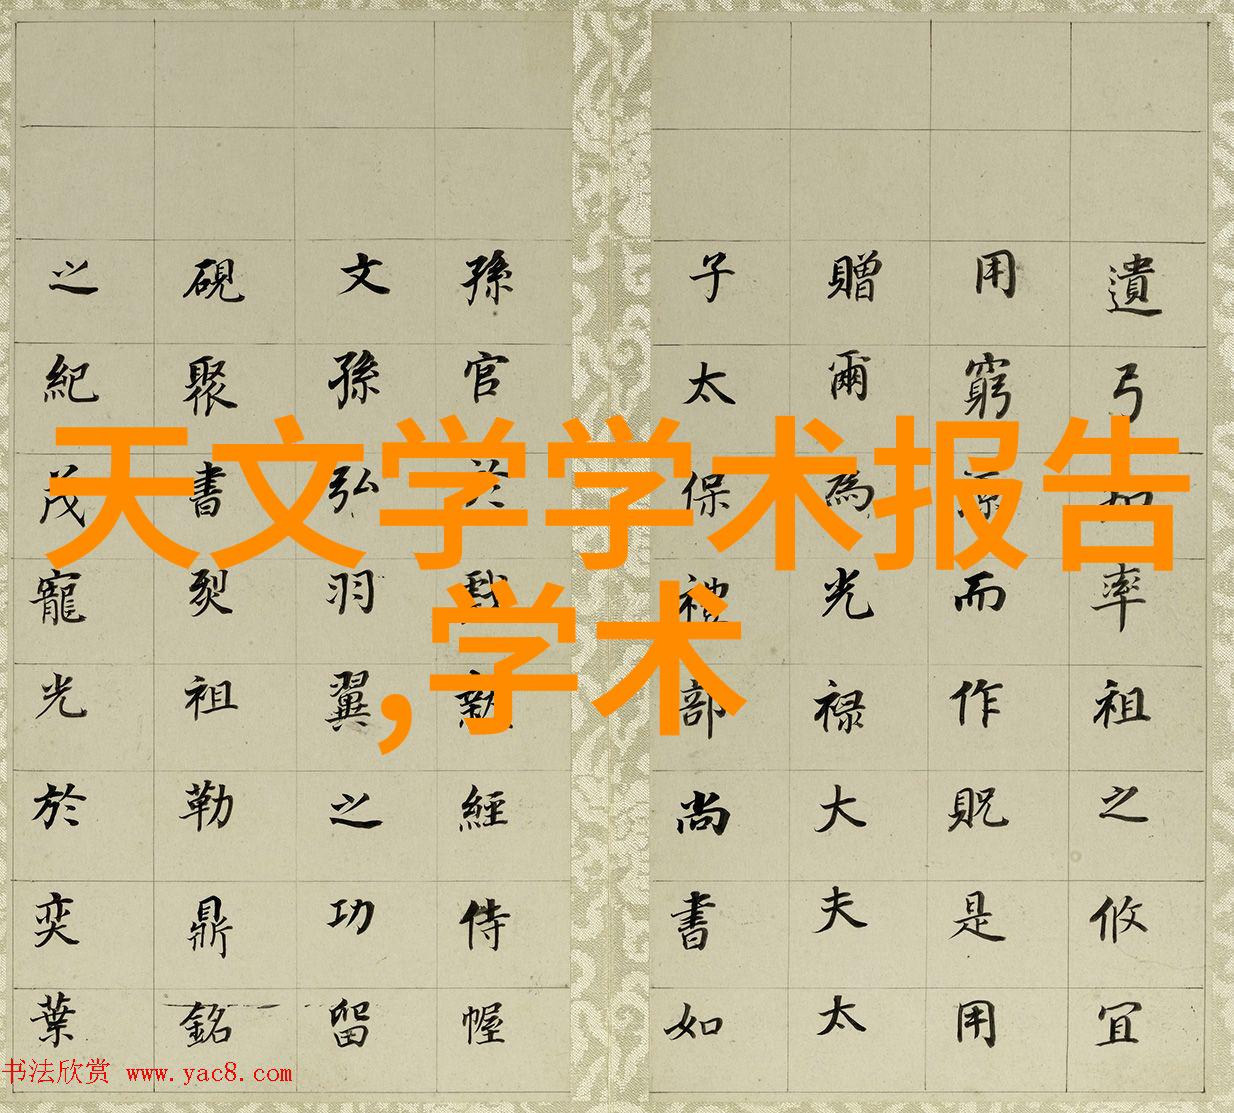 遺弓率祖之攸宜
用窮源而作貺是用
贈爾為光禄大夫太
子太保禮部尚書如
孫官於經侍幄
文孫弘羽翼之功留
硯聚書烈祖勒鼎銘
之紀茂寵光於奕葉
天文学学术报告
,学术
书法欣赏 www.yac8.com